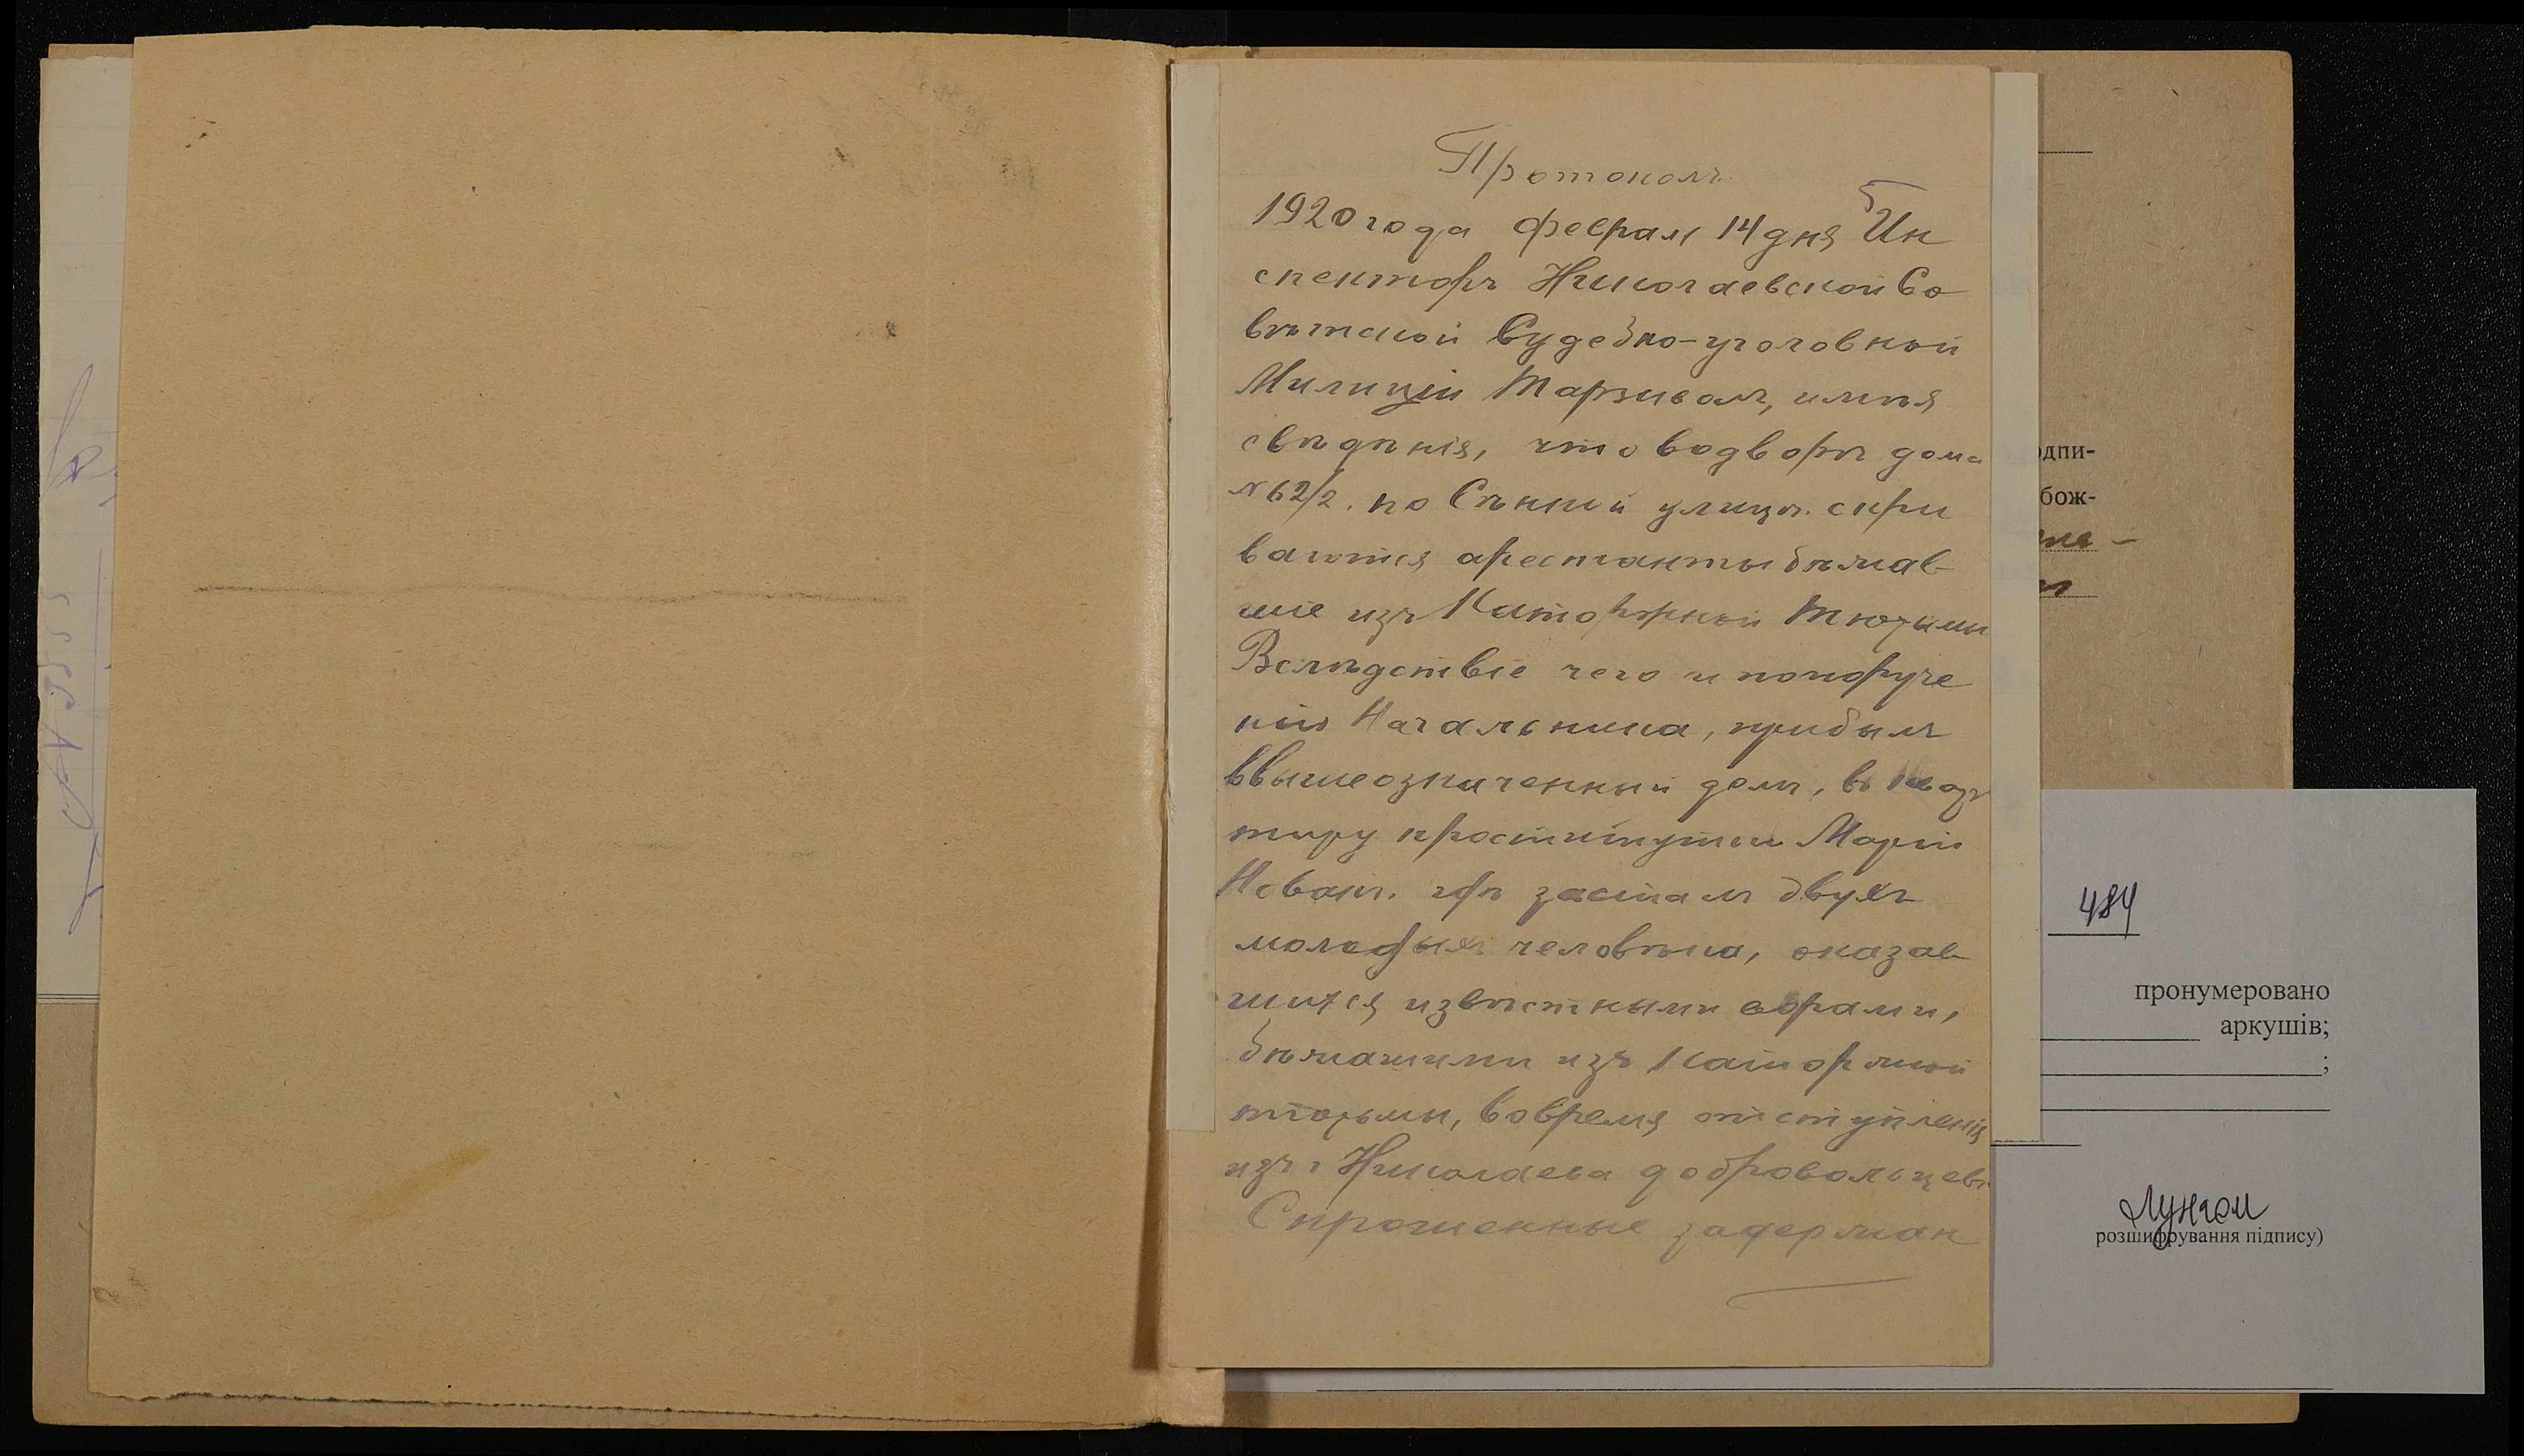 Протоколъ
5
1920 года Февраля 14 дня Ин
спекторъ Николаевской Со
вѣтской Судебно-уголовной
Милиціи имѣя
свѣдѣнія, что водворѣ дома
№ 62/2. по Сѣнной улицѣ. скри
ваются арестанты бѣжав
шіе изъ Каторжной Тюрьмы
Вслѣдствіе чего и попоруче
нію Начальника, прибылъ
ввышеозначенный домъ, въ квар
тиру проститутки Маріи
гдѣ засталъ двухъ
молодыхъ человѣка, оказав
шихся извѣстными ворами,
бѣжашими изъ Каторжной
тюрьмы, вовремя отступленія
изъ г Николаева добровольцевъ.
Спрошенные задержан
одпи-
бож-
484
пронумеровано
аркушів;
;
розшифрування підпису)